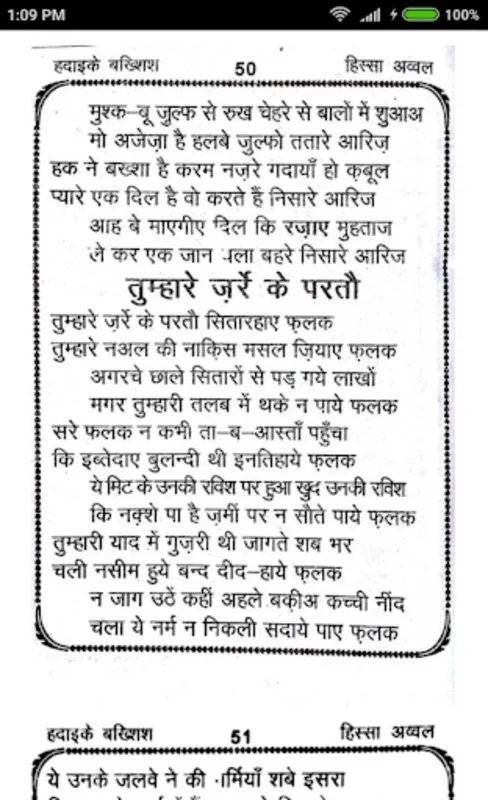 1:09 PM 100%
हदाइके बख़्शिश 50 हिस्सा अव्वल
मुश्क–बू जुल्फ से रुख चेहरे से बालों में शुआअ
मो अजेज़ा है हलबे जुल्फो ततारे आरिज़
हक ने बख्शा है करम नज़रे गदायाँ हो क़बूल
प्यारे एक दिल है वो करते हैं निसारे आरिज
आह बे माएगीए दिल कि रज़ाए मुहताज
ले कर एक जान चला बहरे निसारे आरिज
तुम्हारे ज़र्रे के परतौ
तुम्हारे ज़र्रे के परतौ सितारहाए फ़लक
तुम्हारे नअल की नाक़िस मसल ज़ियाए फ़लक
अगरचे छाले सितारों से पड़ गये लाखों
मगर तुम्हारी तलब में थके न पाये फ़लक
सरे फलक न कभी ता–ब–आस्ताँ पहुँचा
कि इब्तेदाए बुलन्दी थी इनतिहाये फ़लक
ये मिट के उनकी रविश पर हुआ खुद उनकी रविश
कि नक़्शे पा है ज़मीं पर न सौते पाये फ़लक
तुम्हारी याद में गुज़री थी जागते शब भर
चली नसीम हुये बन्द दीद–हाये फ़लक
न जाग उठें कहीं अहले बक़ीअ कच्ची नींद
चला ये नर्म न निकली सदाये पाए फ़लक
हदाइके बख़्शिश 51 हिस्सा अव्वल
ये उनके जलवे ने की शबे इसरा